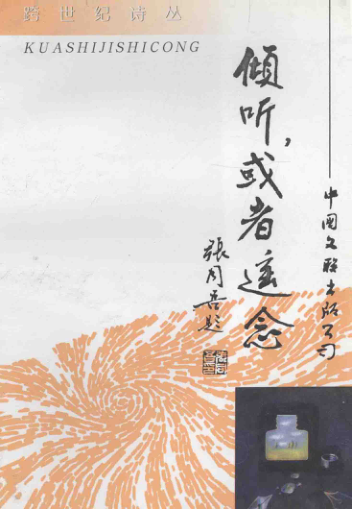 跨世纪诗丛
KUASHIJISHICONG
倾听,或者遥念
張同吾題
中国文联出版公司